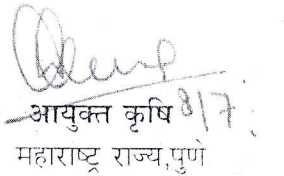 आयुक्त कृषि 8/7
महाराष्ट्र राज्य,पुणे